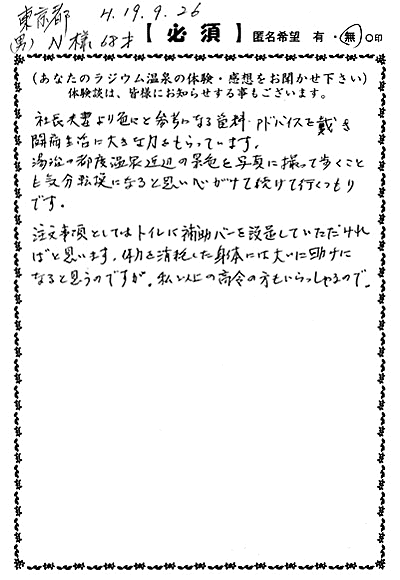 東京都 H.19.9.26
(男) N様 68才 【必須】 匿名希望 有・無 ○印
(あなたのラジウム温泉の体験・感想をお聞かせ下さい)
体験談は、皆様にお知らせする事もございます。
社長夫妻より色々と参考になる資料・アドバイスを戴き
闘病生活に大きな力をもらっています。
湯治の都度温泉近辺の景色を写真に撮って歩くこと
も気分転換になると思い心がけて続けて行くつもり
です。
注文事項としてはトイレに補助バーを設置していただけれ
ばと思います。体力を消耗した身体には大いに助けに
なると思うのですが。私以上の高令の方もいらっしゃるので。